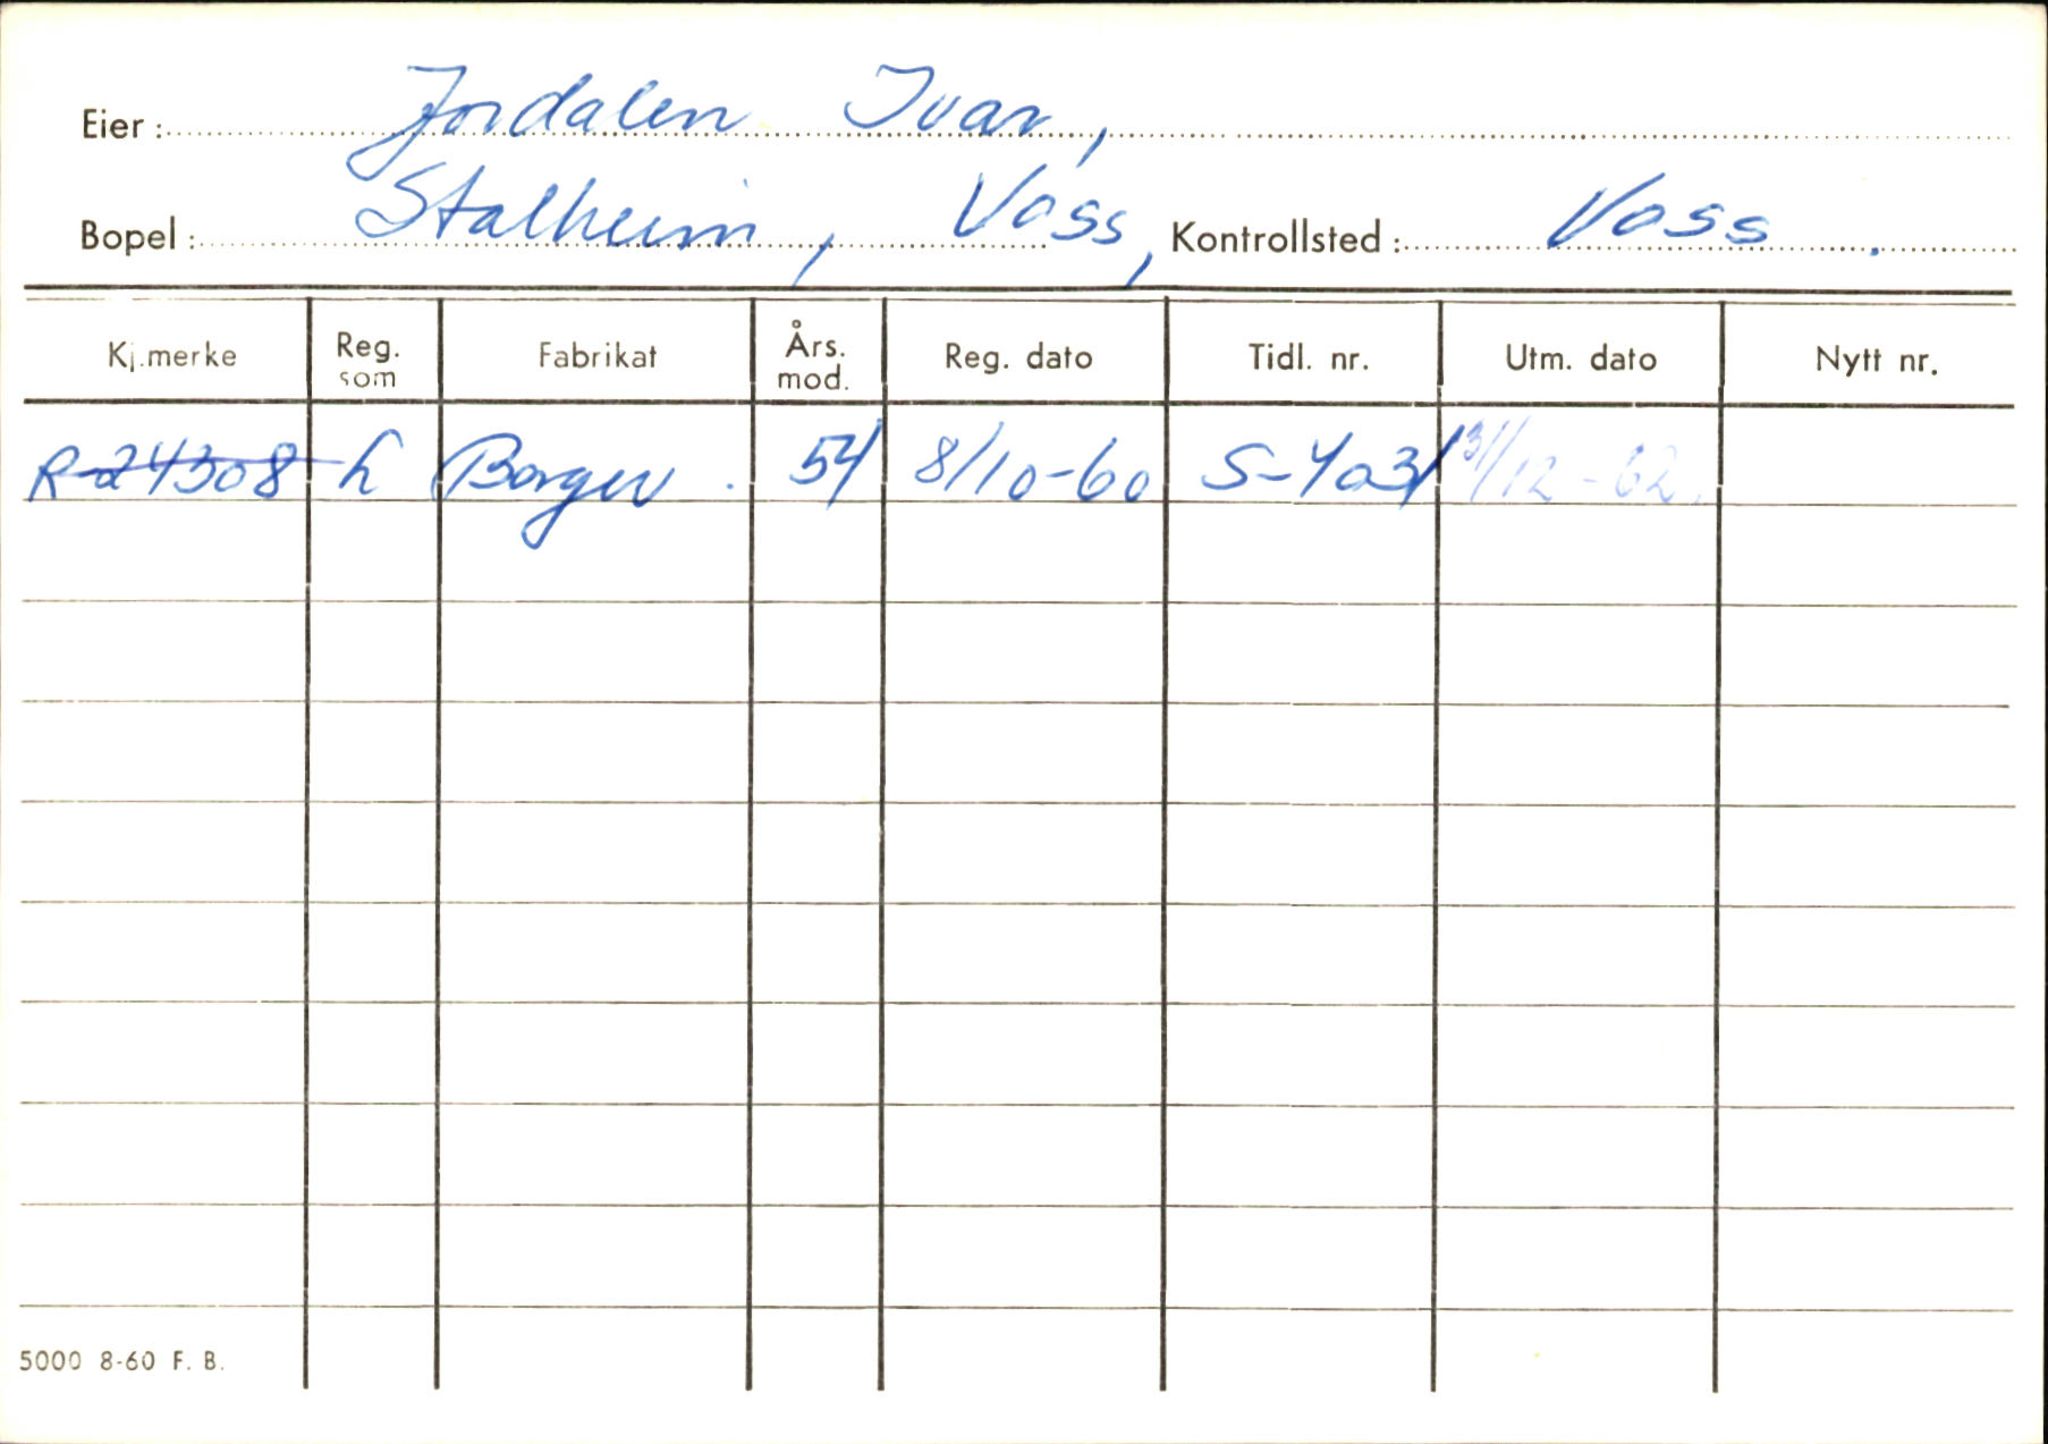 Eier: Jordalen Ivar,
Bopel: Stalheim, Voss, Kontrollsted: Voss.
Kj.merke Reg. som Fabrikat Års. mod. Reg. dato Tidl. nr. Utm. dato Nytt nr.
R-24308 L 54 8/10-60 S-4031 31/12-62.
5000 8-60 F. B.